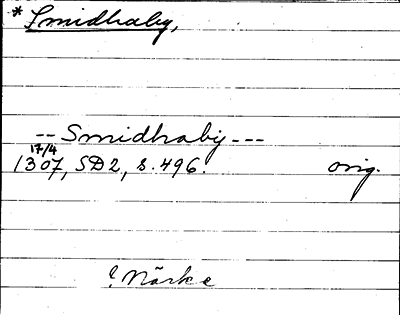 * Smidhaby,
-- Smidhabij ---
17/4
1307, SD2, s. 496. orig.
? Närke